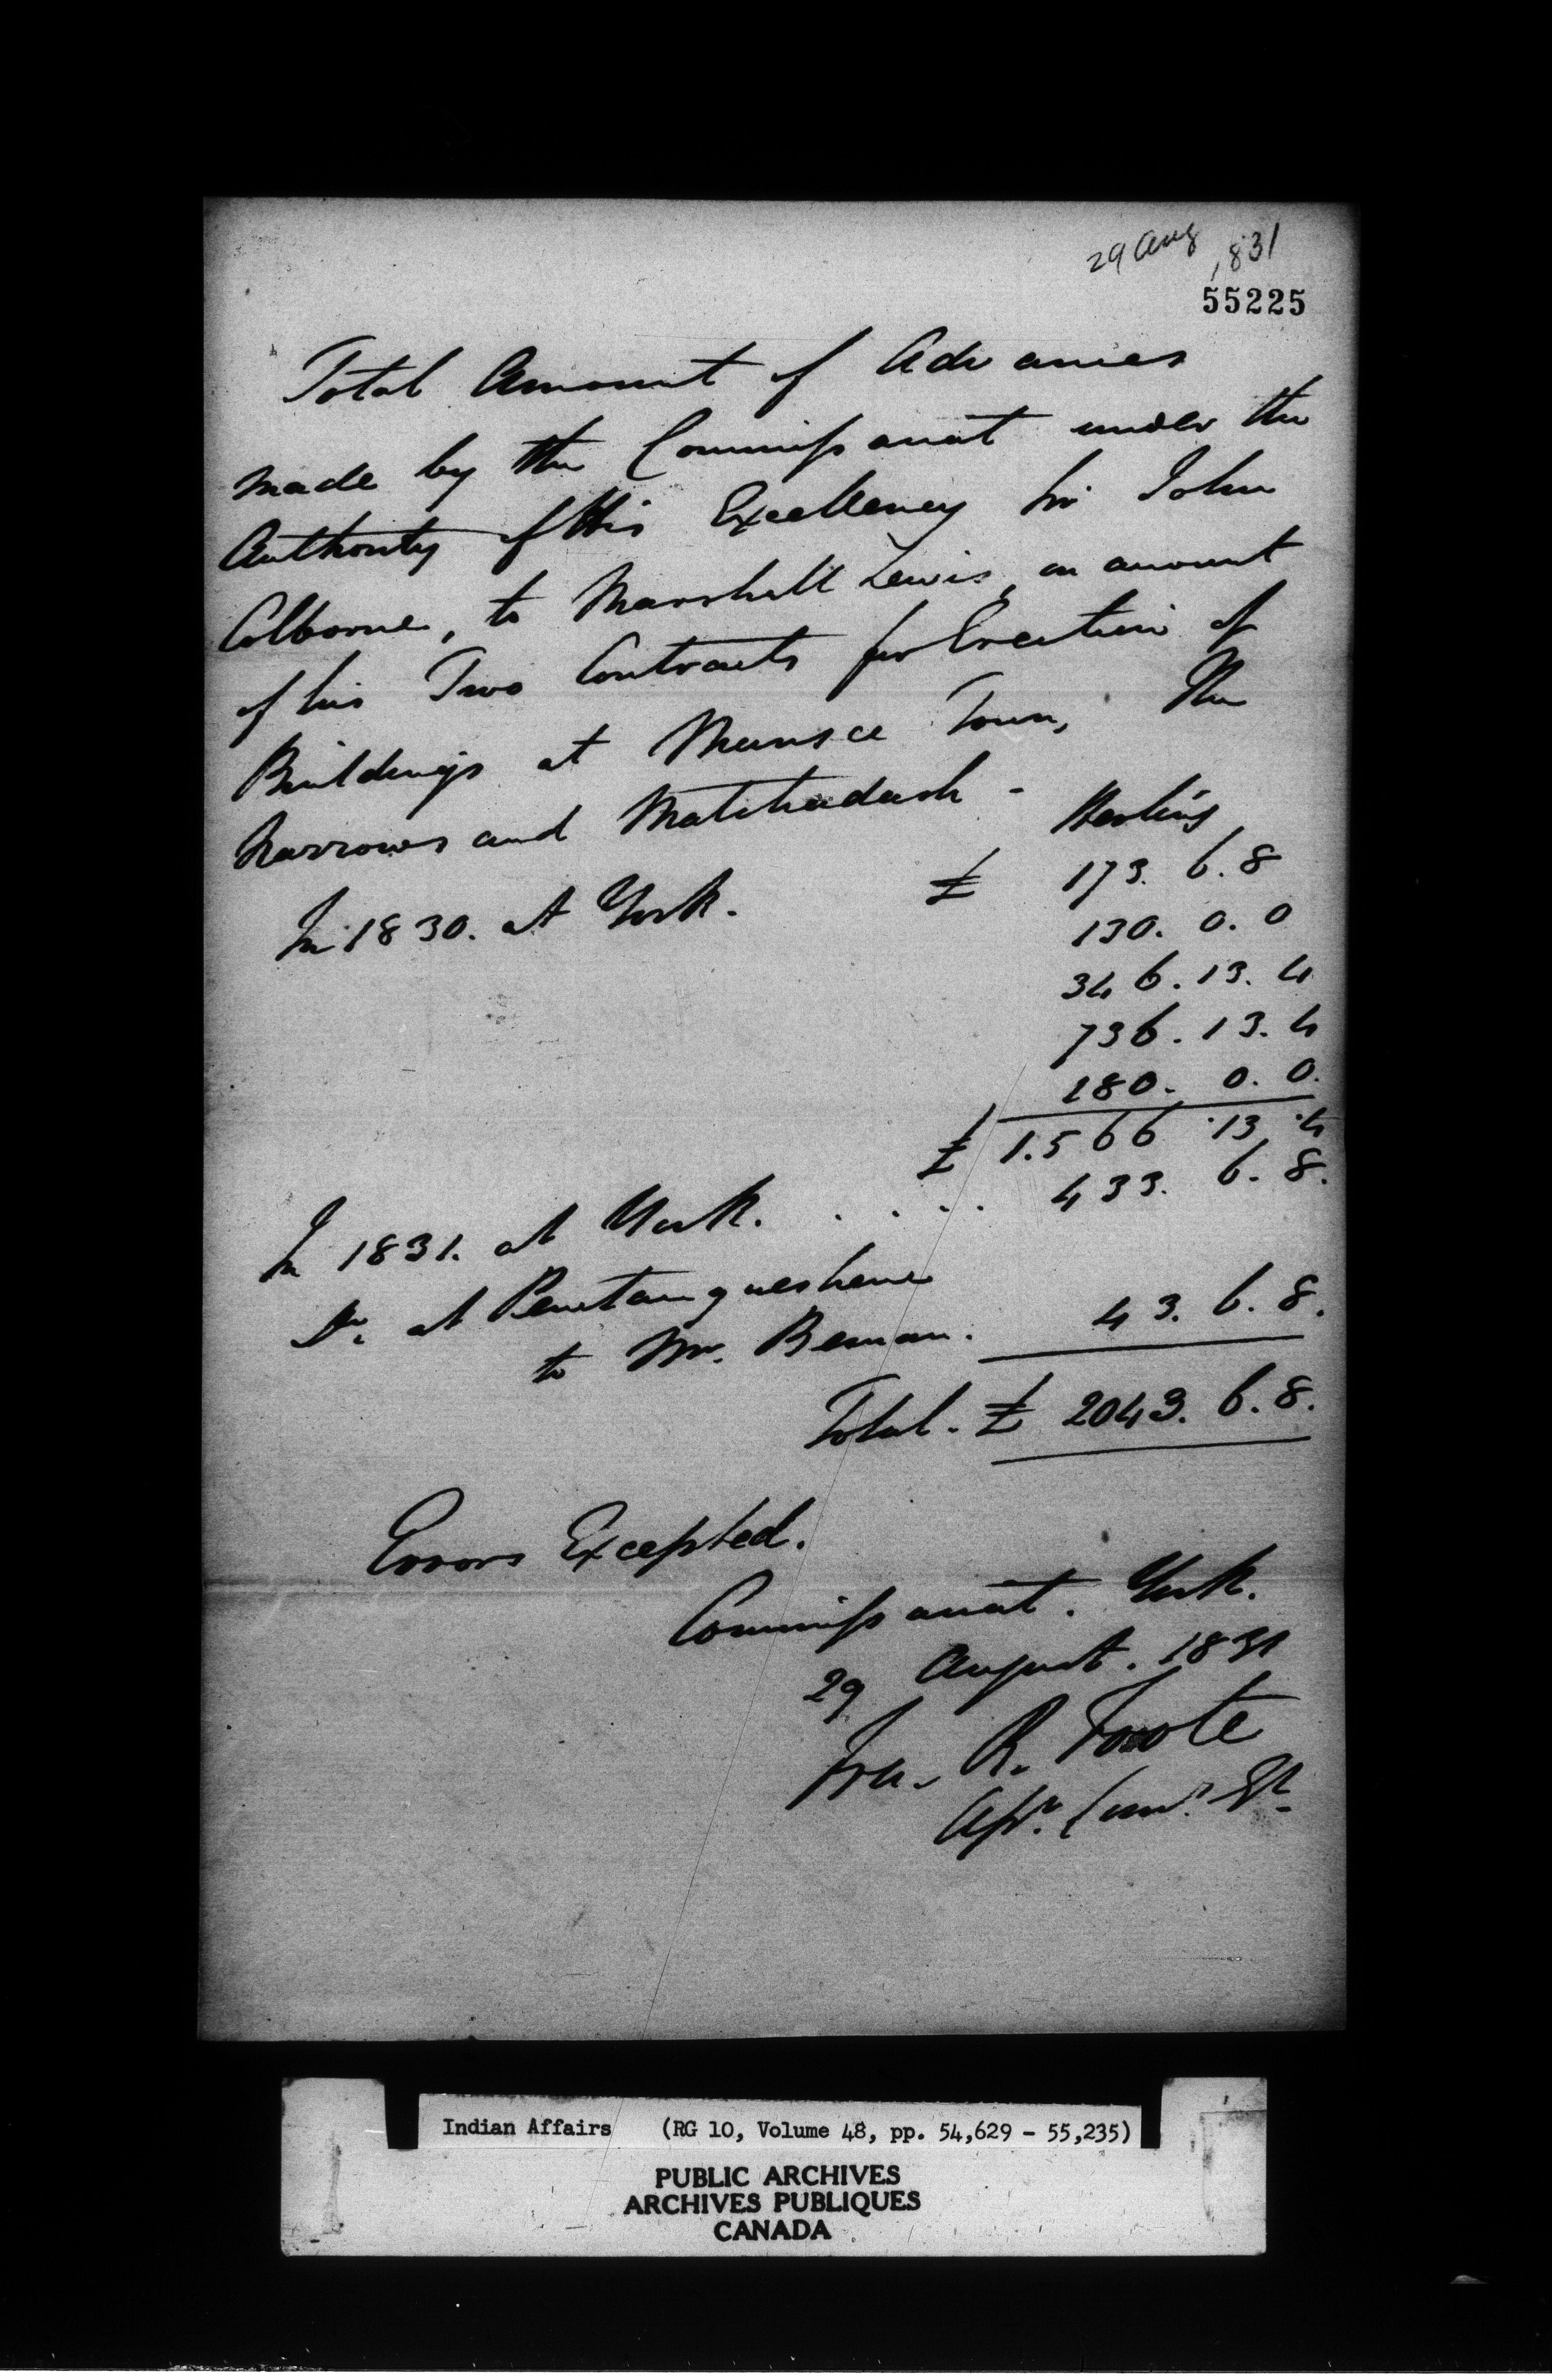 29 Aug 1831
55225
Total Amount of Advances
made by the Commissariat under the
Authority of His Excellency Sir John
Colborne, to Marshall Lewis, on amount
of his Two Contracts for Erection of
Buildings at Munsee Town, The
Narrows and Matchadash -
Sterling
In 1830. at York. £ 173. 6. 8
130. 0. 0
346. 13. 4
736. 13. 4
180. 0. 0.
£ 1.566 . 13 . 4
In 1831. at York. . . . . 433. 6. 8.
Do. at Penetangueshene
to Mr. Beman. 43. 6. 8.
Total. £ 2043. 6. 8.
Errors Excepted.
Commissariat. York.
29 August. 1831
R. Foote
Indian Affairs (RG 10, Volume 48, pp. 54,629 - 55,235)
PUBLIC ARCHIVES
ARCHIVES PUBLIQUES
CANADA